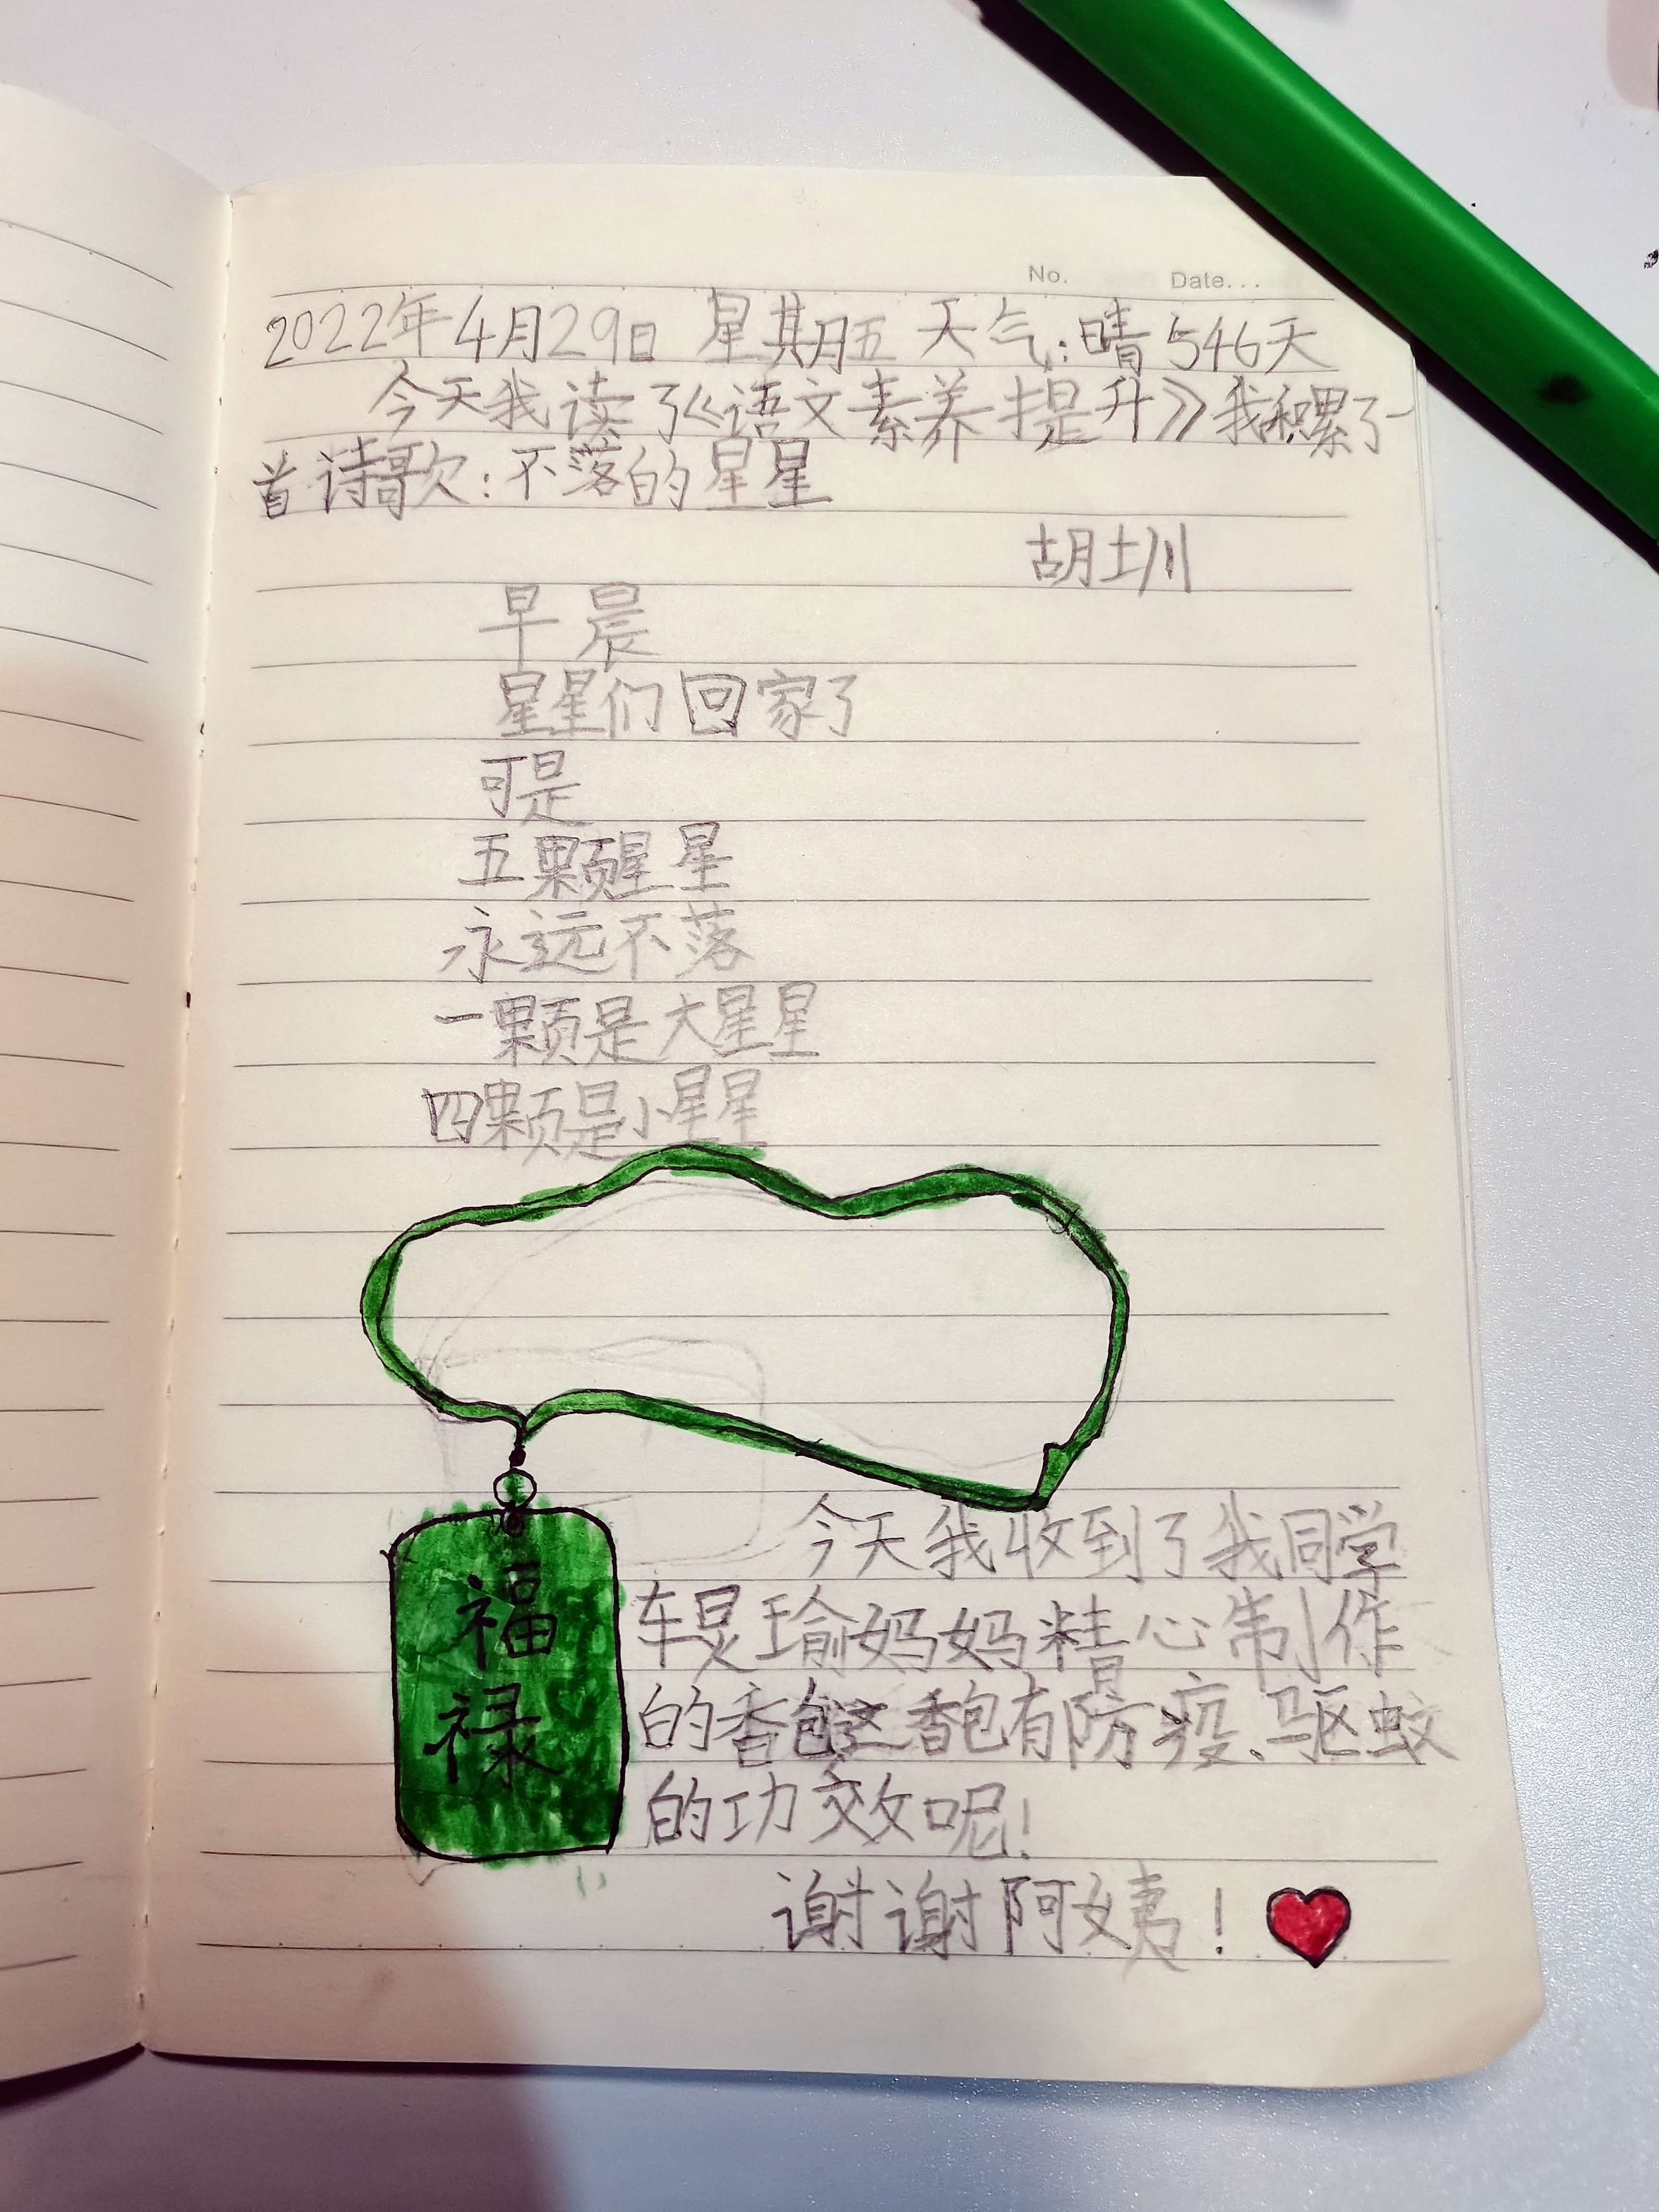 No. Date...
2022年4月29日 星期五 天气:晴 546天
今天我读了《语文素养提升》我积累了一
首诗歌:不落的星星
胡圳
早晨
星星们回家了
可是
五颗星星
永远不落
一颗是大星星
四颗是小星星
福
禄
今天我收到了我同学
车炅瑜妈妈精心制作
的香包这香包有防疫、驱蚊
的功效呢!
谢谢阿姨!